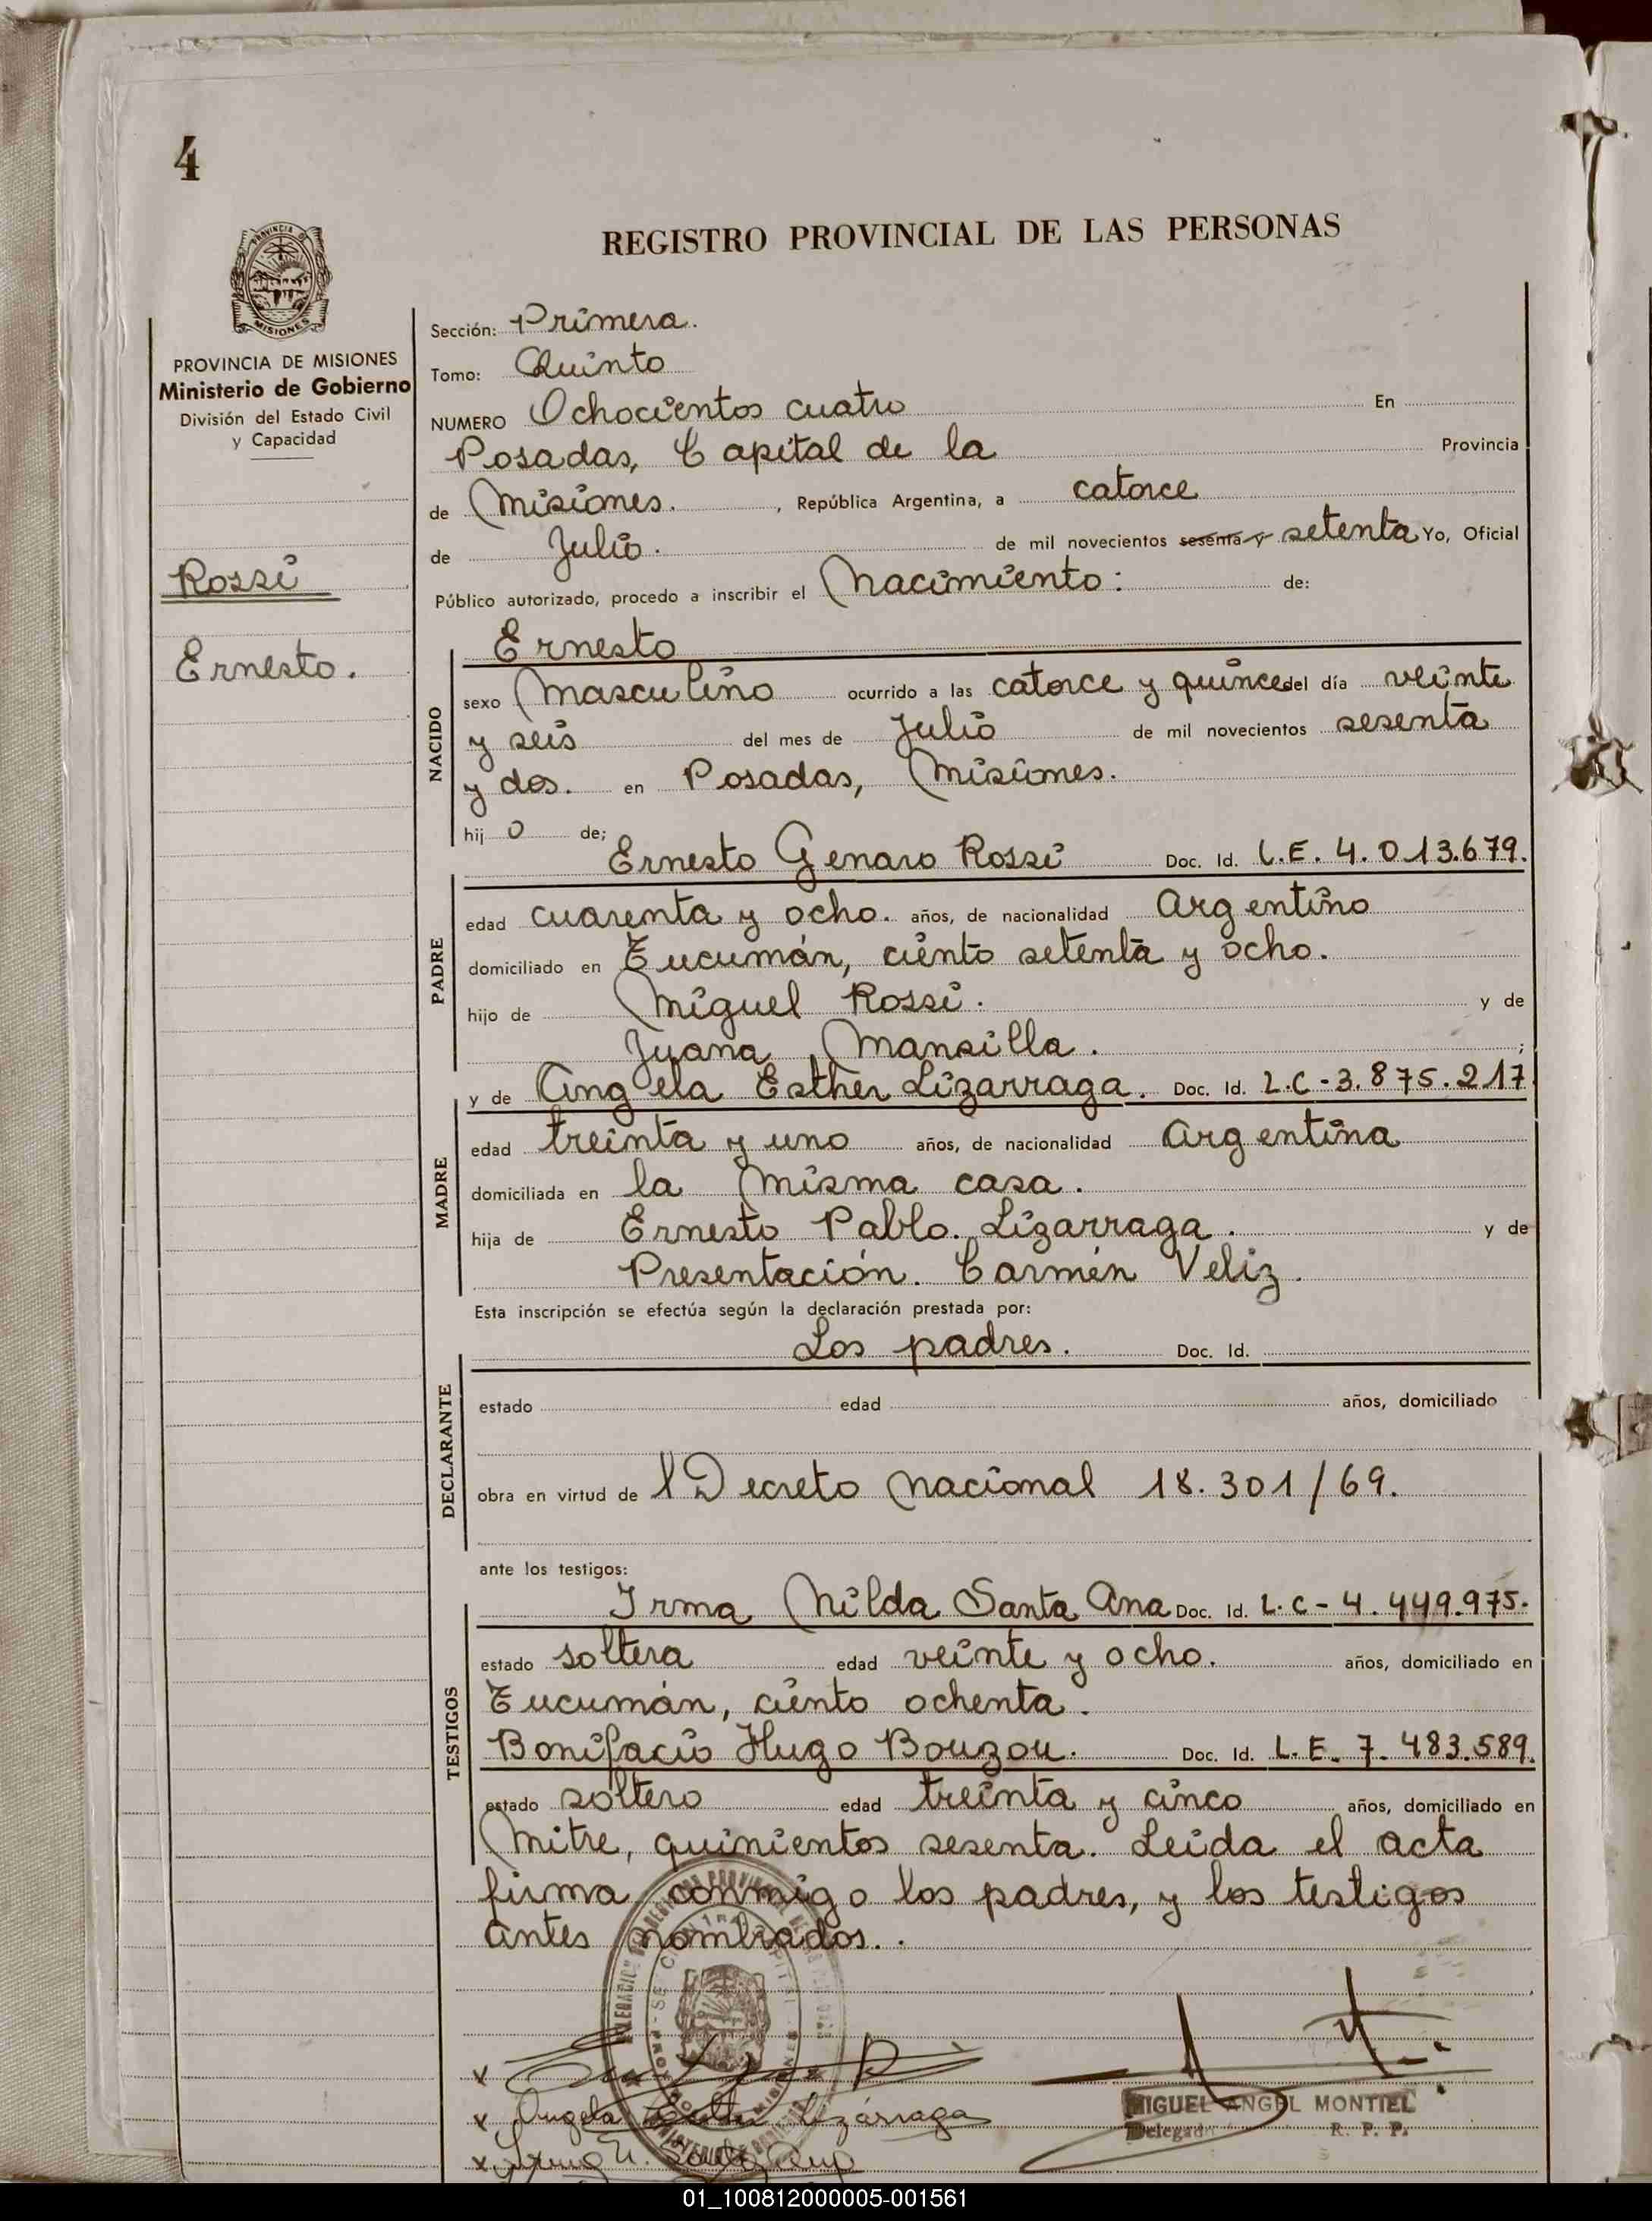 4
REGISTRO PROVINCIAL DE LAS PERSONAS
PROVINCIA DE MISIONES
Ministerio de Gobierno
División del Estado Civil
y Capacidad
Rossi
Ernesto.
Sección: Primera.
Tomo: Quinto
NUMERO Ochocientos cuatro En
Posadas, Capital de la Provincia
de Misiones. , República Argentina, a catorce
de Julio. de mil novecientos sesenta y setenta Yo, Oficial
Público autorizado, procedo a inscribir el Nacimiento: de:
Ernesto
NACIDO
sexo Masculino ocurrido a las catorce y quince del día veinte
y seis del mes de Julio de mil novecientos sesenta
y dos. en Posadas, Misiones.
hij o de;
Ernesto Genaro Rossi Doc. Id. L.E. 4.013.679.
PADRE
edad cuarenta y ocho. años, de nacionalidad Argentino
domiciliado en Tucumán, ciento setenta y ocho.
hijo de Miguel Rossi. y de
Juana Mansilla. ;
y de Angela Esther Lizarraga. Doc. Id. L.C-3.875.217
MADRE
edad treinta y uno años, de nacionalidad Argentina
domiciliada en la misma casa.
hija de Ernesto Pablo Lizarraga. y de
Presentación. Carmen Veliz.
Esta inscripción se efectúa según la declaración prestada por:
Los padres. Doc. Id.
DECLARANTE
estado edad años, domiciliado
obra en virtud de l Decreto Nacional 18.301/69.
ante los testigos:
Irma Nilda Santa Ana Doc. Id. L.C-4.449.975.
TESTIGOS
estado soltera edad veinte y ocho. años, domiciliado en
Tucumán, ciento ochenta.
Bonifacio Hugo Bouzou. Doc. Id. L.E. 7.483.589.
estado soltero edad treinta y cinco años, domiciliado en
Mitre, quinientos sesenta. Leida el acta
firma conmigo los padres, y los testigos
antes nombrados..
x
x Angela Esther Lizárraga
x
MIGUEL ANGEL MONTIEL
Delegado R. P. P.
01_100812000005-001561